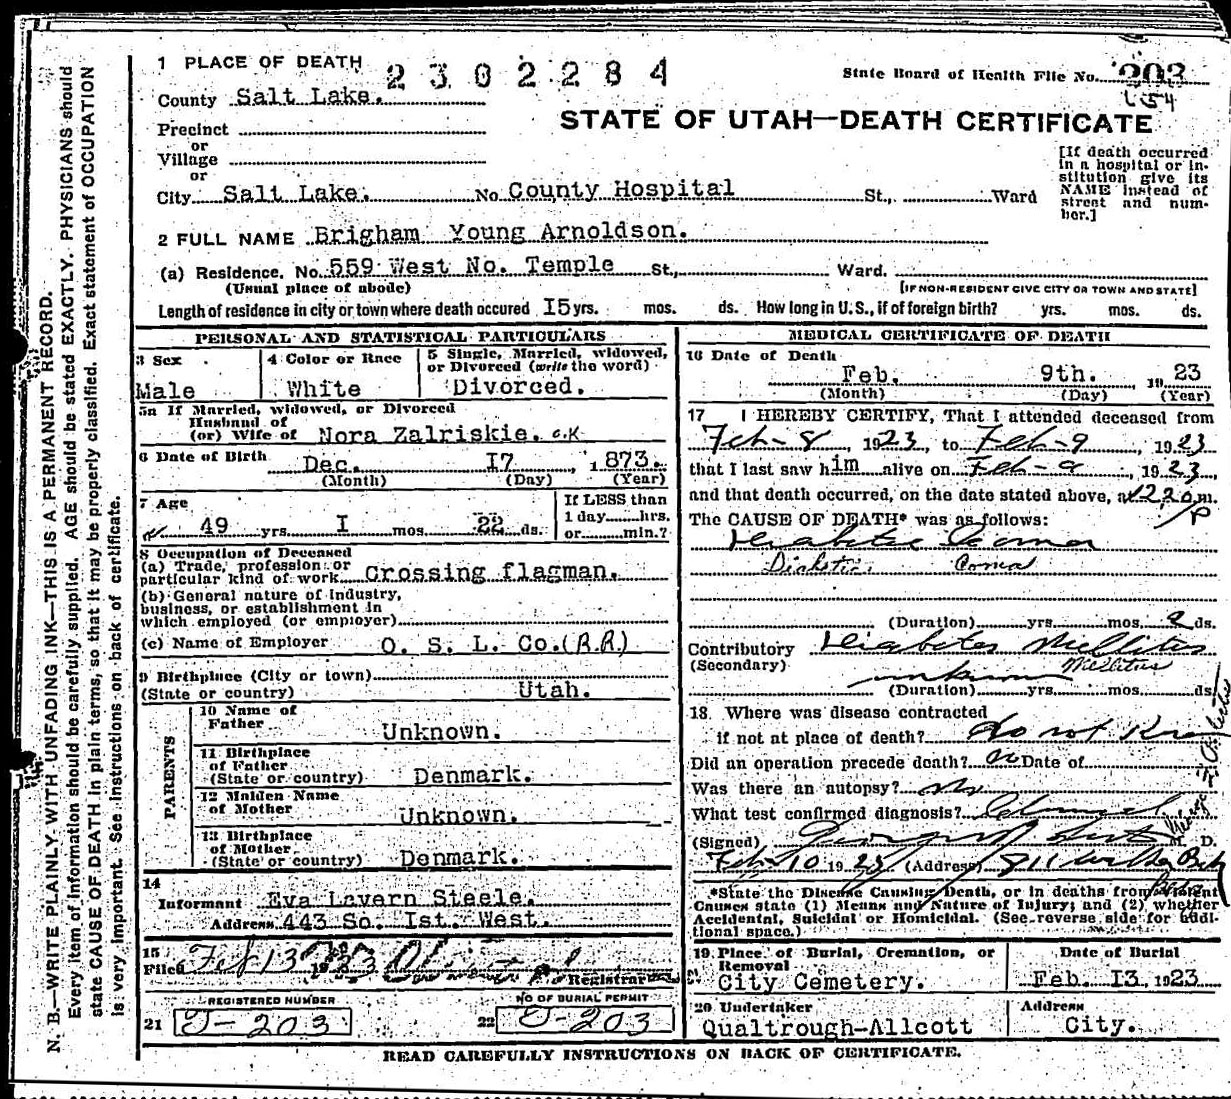 1 PLACE OF DEATH 2302284 State Board of Health File No. 203
County Salt Lake.
STATE OF UTAH—DEATH CERTIFICATE
Precinct
or
Village
or
City Salt Lake. No. County Hospital St., Ward
[If death occurred in a hospital or institution give its NAME instead of street and number.]
2 FULL NAME Brigham Young Arnoldson.
(a) Residence. No. 559 West No. Temple St., Ward.
(Usual place of abode) [IF NON-RESIDENT GIVE CITY OR TOWN AND STATE]
Length of residence in city or town where death occured 15 yrs. mos. ds. How long in U. S., if of foreign birth? yrs. mos. ds.
PERSONAL AND STATISTICAL PARTICULARS
3 Sex
Male
4 Color or Race
White
5 Single, Married, widowed, or Divorced (write the word)
Divorced.
5a If Married, widowed, or Divorced
Husband of
(or) Wife of Nora Zalriskie. O.K.
6 Date of Birth Dec. 17, 1873.
(Month) (Day) (Year)
7 Age
49 yrs. I mos. 22 ds.
If LESS than
1 day hrs.
or min.?
8 Occupation of Deceased
(a) Trade, profession or
particular kind of work Crossing flagman.
(b) General nature of Industry,
business, or establishment in
which employed (or employer)
(c) Name of Employer O. S. L. Co. (R.R.)
9 Birthplace (City or town)
(State or country) Utah.
PARENTS
10 Name of
Father Unknown.
11 Birthplace
of Father
(State or country) Denmark.
12 Maiden Name
of Mother Unknown.
13 Birthplace
of Mother
(State or country) Denmark.
14
Informant Eva Lavern Steele.
Address 443 So. Ist. West.
15
Filed Feb 13 Registrar
REGISTERED NUMBER
21 J-203
NO OF BURIAL PERMIT
22 J-203
MEDICAL CERTIFICATE OF DEATH
16 Date of Death
Feb. 9th. 1923
(Month) (Day) (Year)
17 I HEREBY CERTIFY, That I attended deceased from
Feb-8, 1923, to Feb-9, 1923
that I last saw him alive on Feb-9, 1923,
and that death occurred, on the date stated above, at 1220 m.
P
The CAUSE OF DEATH* was as follows:
Diabetic Coma
Diabetic Coma
(Duration) yrs. mos. 2 ds.
Contributory Diabetes Mellitus
(Secondary) Mellitus
unknown
(Duration) yrs. mos. ds.
18. Where was disease contracted
if not at place of death? do not know
Did an operation precede death? no Date of
Was there an autopsy? no
What test confirmed diagnosis?
(Signed) M. D.
Feb-10 1923 (Address)
*State the Disease Causing Death, or in deaths from Violent
Causes state (1) Means and Nature of Injury; and (2) whether
Accidental, Suicidal or Homicidal. (See reverse side for additional space.)
19. Place of Burial, Cremation, or
Removal
City Cemetery.
Date of Burial
Feb. I3, 1923
20 Undertaker
Qualtrough-Allcott
Address
City.
READ CAREFULLY INSTRUCTIONS ON BACK OF CERTIFICATE.
N. B.—WRITE PLAINLY WITH UNFADING INK—THIS IS A PERMANENT RECORD.
Every item of information should be carefully supplied. AGE should be stated EXACTLY. PHYSICIANS should
state CAUSE OF DEATH in plain terms, so that it may be properly classified. Exact statement of OCCUPATION
is very important. See instructions on back of certificate.